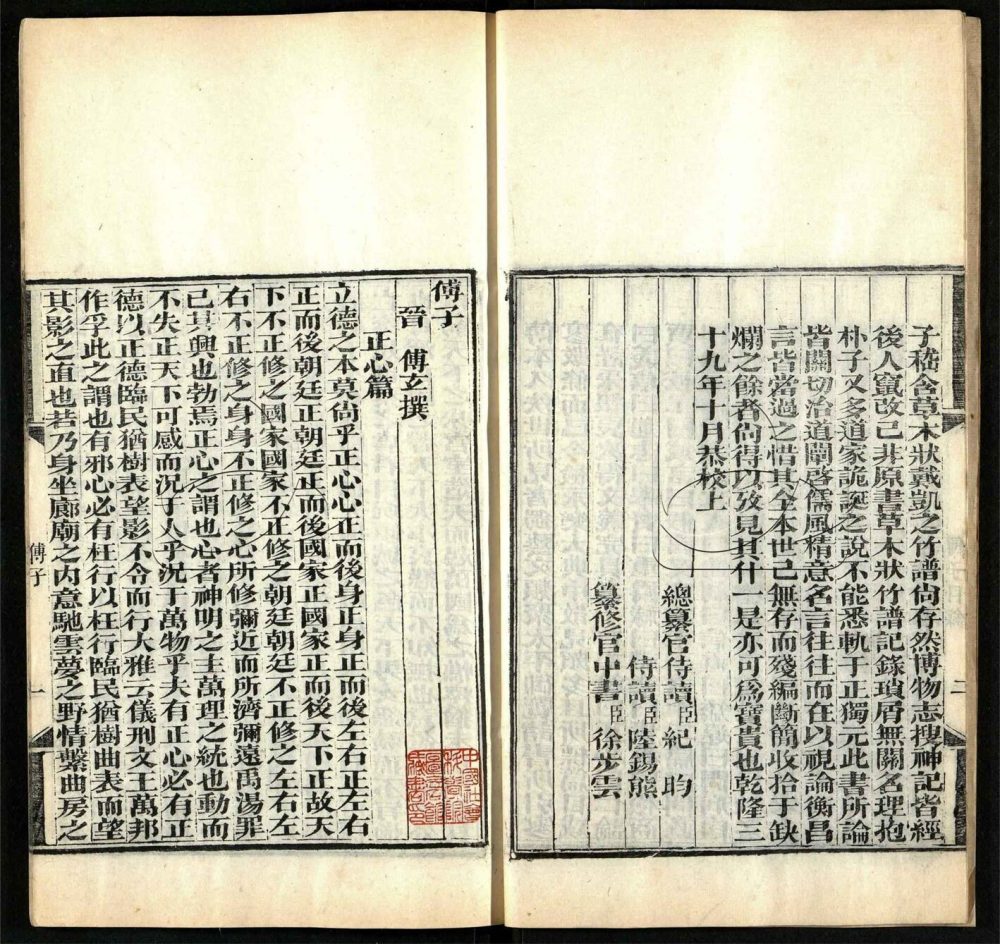 子嵇含草木狀戴凱之竹譜尙存然博物志搜神記皆經
後人竄改已非原書草木狀竹譜記錄瑣屑無關名理抱
朴子又多道家詭誕之說不能悉軌于正獨元此書所論
皆關切治道闡啓儒風精意名言往往而在以視論衡昌
言皆當過之惜其全本世已無存而殘編斷簡收拾于缺
爛之餘者尙得以攷見其什一是亦可爲寶貴也乾隆三
十九年十月恭校上
總纂官侍讀臣紀昀
侍讀臣陸錫熊
纂修官中書臣徐步雲
二
傅子
晉 傅玄撰
正心篇
立德之本莫尙乎正心心正而後身正身正而後左右正左右
正而後朝廷正朝廷正而後國家正國家正而後天下正故天
下不正修之國家國家不正修之朝廷朝廷不正修之左右左
右不正修之身身不正修之心所修彌近而所濟彌遠禹湯罪
已其興也勃焉正心之謂也心者神明之主萬理之統也動而
不失正天下可感而況于人乎況于萬物乎夫有正心必有正
德以正德臨民猶樹表望影不令而行大雅云儀刑文王萬邦
作孚此之謂也有邪心必有枉行以枉行臨民猶樹曲表而望
其影之直也若乃身坐廊廟之內意馳雲夢之野情繫曲房之
傅子
一